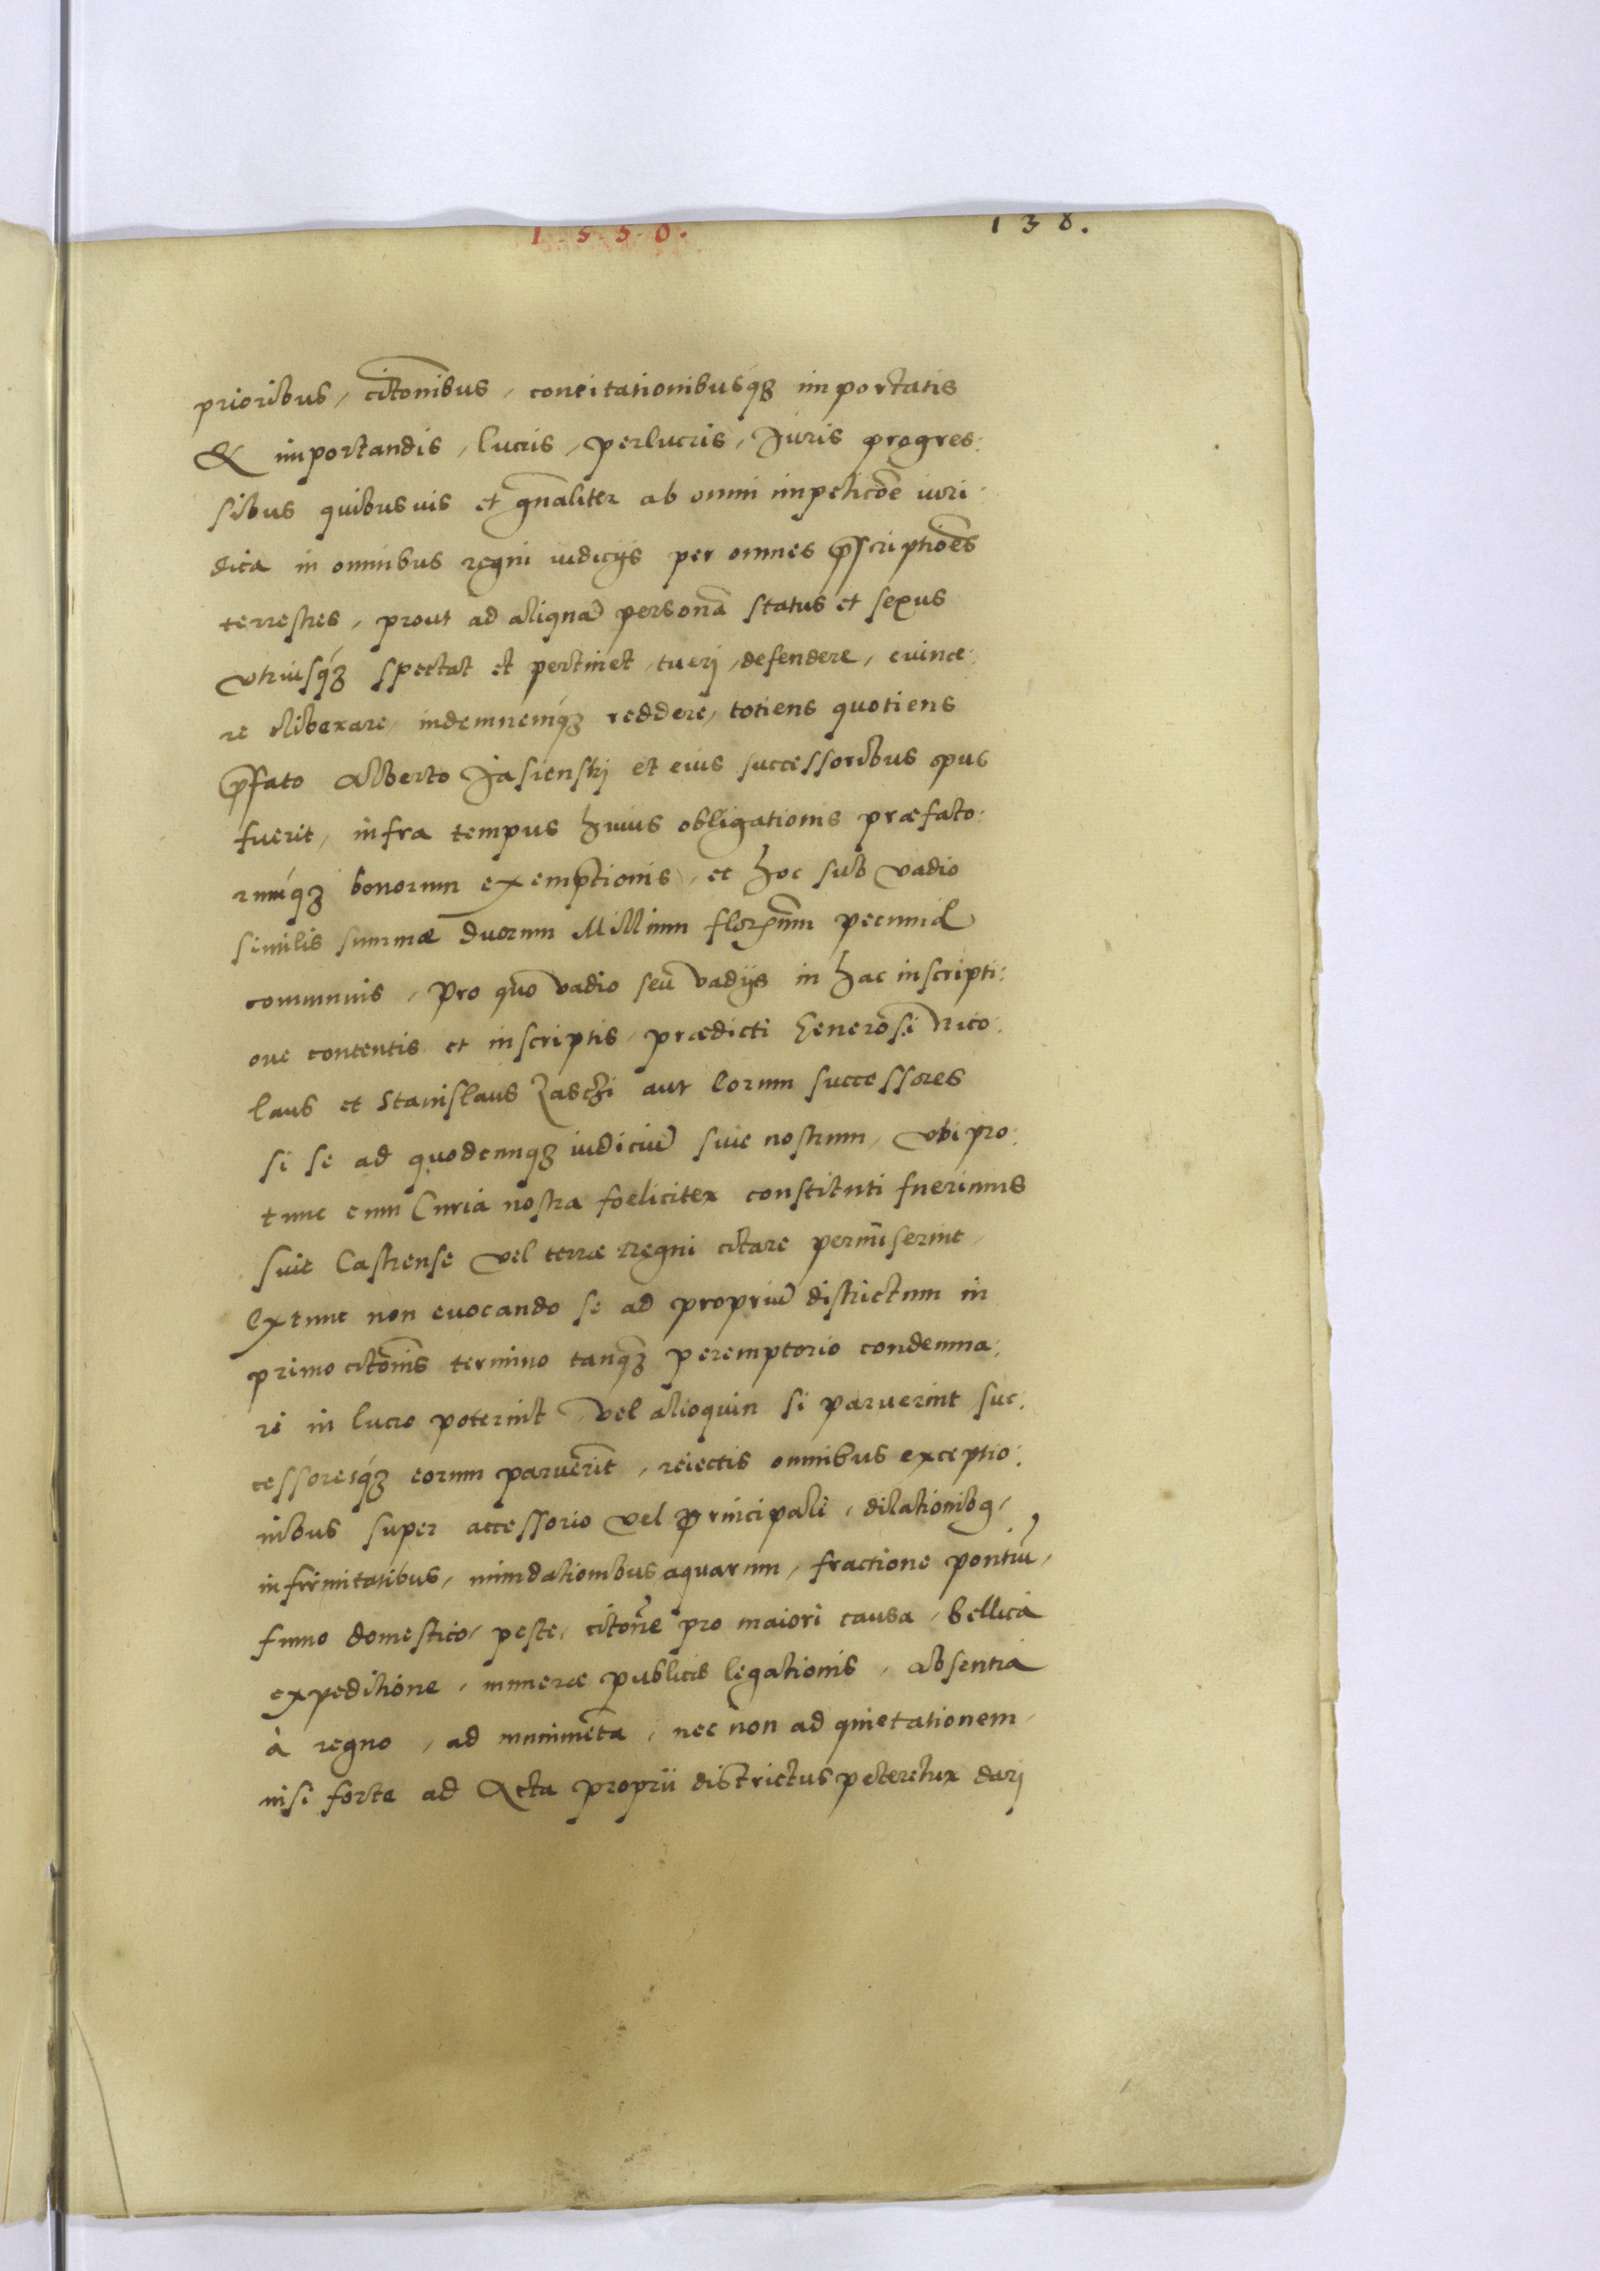 1550.
138.
prioribus, citōnibus, concitationibusq́ꝫ importatis
& importandis, lucris, perlucris, Juris progres:
sibus quibusvis et gn̄aliter ab omni impeticōe iuri:
dica in omnibus regni iudicijs per omnes p̄scriptiōes
terrestres, prout ad aliquā personā status et sexus
vtriusq́ꝫ spectat et pertinet, tueri, defendere, euince:
re, liberare, indemnemq́ꝫ reddere, totiens quotiens
p̄fato Alberto Jasienskj et eius successoribus opus
fuerit, infra tempus huius obligationis præfato:
rumq́ꝫ bonorum exemptionis, et hoc sub vadio
similis summæ duorum Millium florenū pecuniæ
communis, Pro quo vadio seu vadijs in hac inscripti:
one contentis et inscriptis, prædicti Generosi Nico:
laus et Stanislaus Zaschi aut eorum successores
si se ad quodcunqꝫ iudiciū siue nostrum, vbi pro:
tunc cum Curia nostra foeliciter constituti fuerimus
siue Castrense vel terræ regni citare permiserint,
Extunc non euocando se ad propriū districtum in
primo citōnis termino tanqꝫ peremptorio condemna:
ri in lucro poterint, vel alioquin si paruerint suc:
cessoresq́ꝫ eorum paruerīt, reiectis omnibus exceptio:
nibus super accessorio vel principali, dilationibꝯ,
infirmitatibus, inundationibus aquarum, fractione pontiū,
fumo domestico, peste, citōne pro maiori causa, bellica
expeditione, munere publicæ legationis, absentia
à regno, ad munimēta, nec non ad quietationem,
nisi forte ad Acta proprii districtus peteretur darj